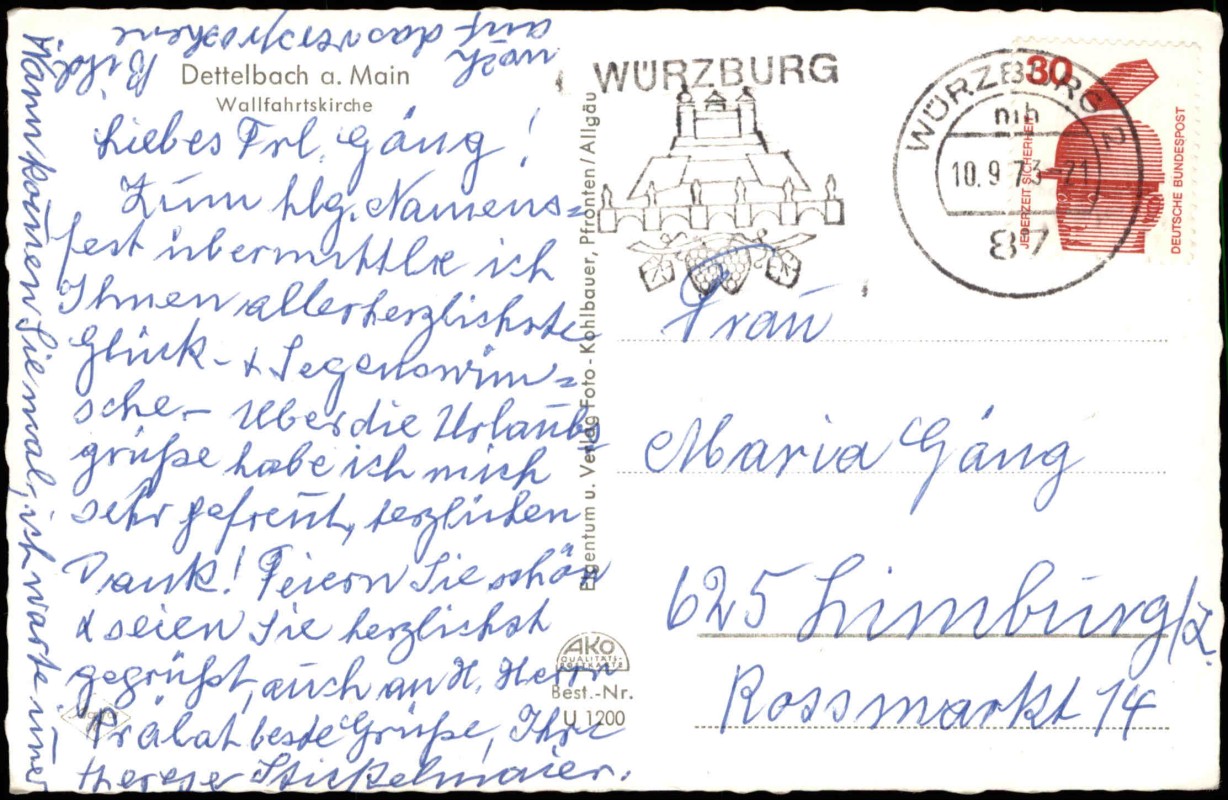 Dettelbach a. Main
Wallfahrtskirche
Liebes Frl. Gäng!
Zum hlg. Namens=
fest übermittle ich
Ihnen allerherzlichste
Glück- + Segenswün=
sche.- Über die Urlaubs
grüße habe ich mich
sehr gefreut, herzlichen
Dank! Feiern Sie schön
& seien Sie herzlichst
gegrüßt, auch an H. Herrn
Prälat beste Grüße, Ihre
Therese Stickelmaier.
Wann kommen Sie mal, ich warte immer
noch auf das versprochene
Bild
Eigentum u. Verlag Foto-Kohlbauer, Pfronten/Allgäu
AKO
QUALITÄTS-
POSTKARTE
Best.-Nr.
U 1200
WÜRZBURG
WÜRZBURG 2
mh
10.9.73-21
87
30
JEDERZEIT SICHERHEIT
DEUTSCHE BUNDESPOST
Frau
Maria Gäng
625 Limburg/L.
Rossmarkt 14